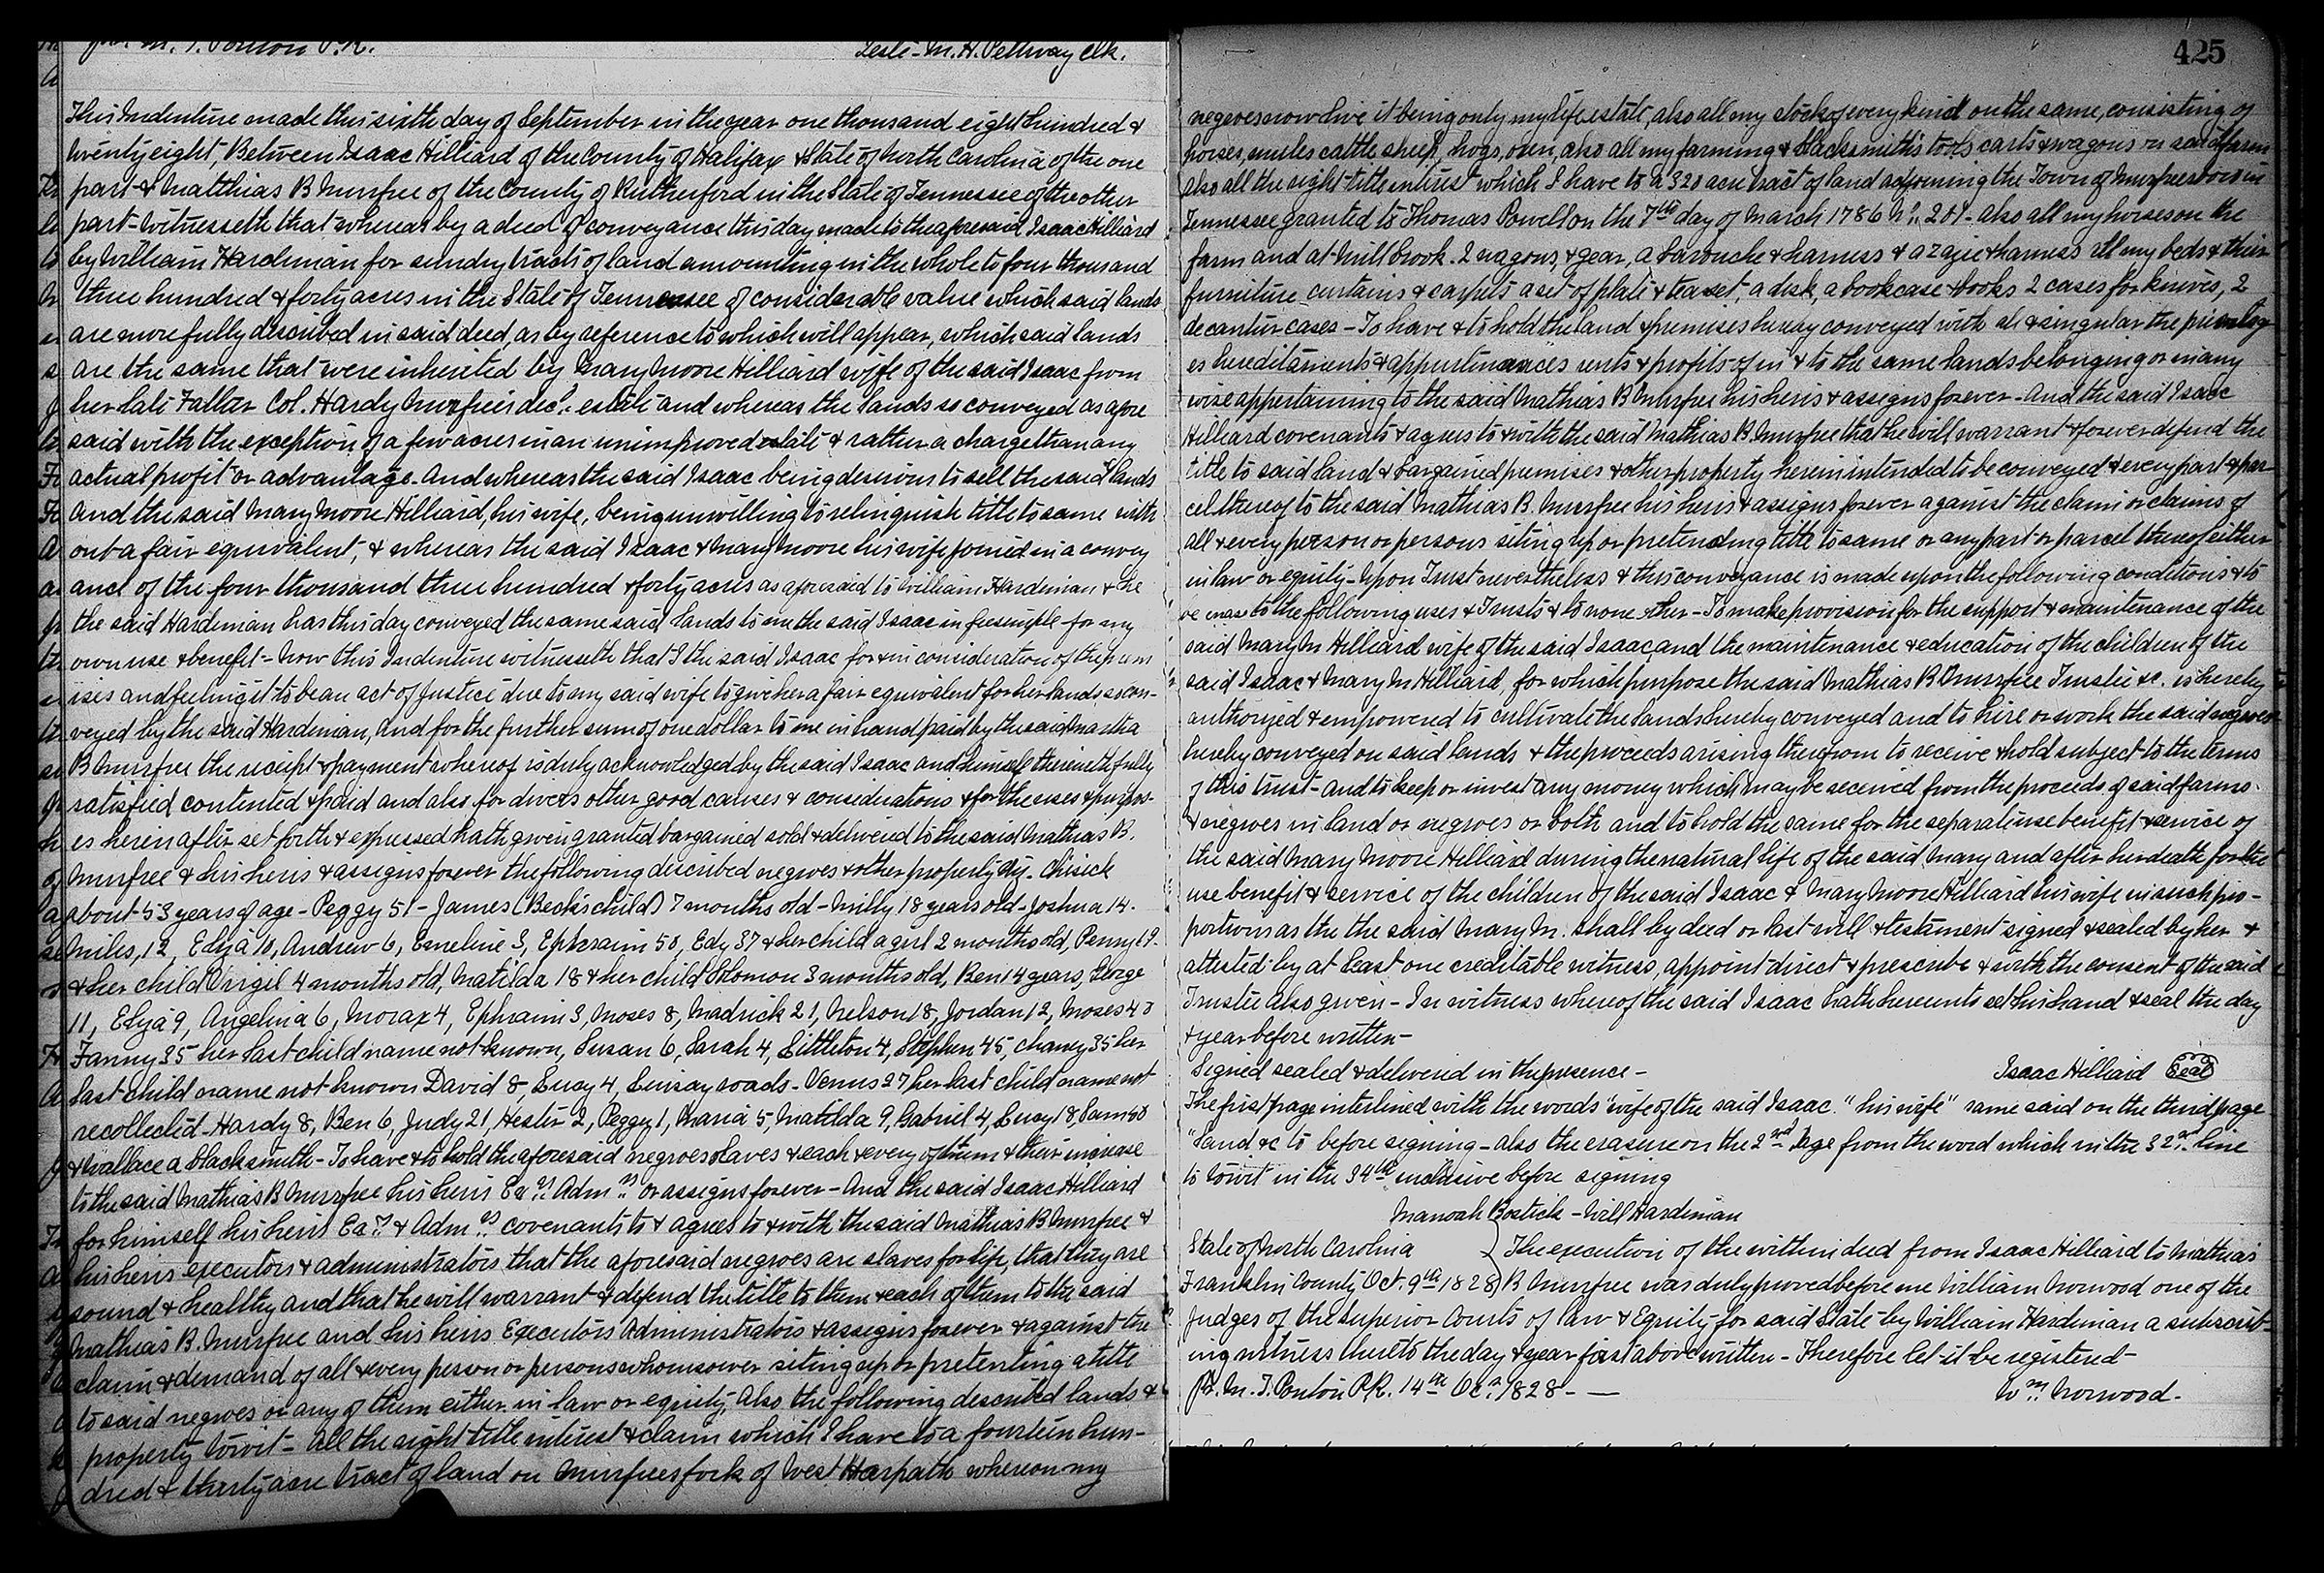 M. T. Ponton P.R.
Teste - M. H. Pettway Clk.
This Indenture made this sixth day of September in the year one thousand eight hundred &
twenty eight, Between Isaac Hilliard of the County of Halifax & State of North Carolina of the one
part & Matthias B Murfree of the County of Rutherford in the State of Tennessee of the other
part - Witnesseth that whereas by a deed of conveyance this day made to the aforesaid Isaac Hilliard
by William Hardeman for sundry tracts of land amounting in the whole to four thousand
three hundred & forty acres in the State of Tennessee of considerable value which said lands
are more fully described in said deed, as by reference to which will appear, which said lands
are the same that were inherited by Mary Moore Hilliard wife of the said Isaac from
her late Father Col. Hardy Murfree's decd. estate and whereas the lands so conveyed as afore
said with the exception of a few acres in an unimproved state & rather a charge than any
actual profit or advantage. And whereas the said Isaac being desirous to sell the said lands
And the said Mary Moore Hilliard, his wife, being unwilling to relinquish title to same with
out a fair equivalent, & whereas the said Isaac & Mary Moore his wife joined in a convey
ance of the four thousand three hundred & forty acres as aforesaid to William Hardeman & he
the said Hardeman has this day conveyed the same said lands to me the said Isaac in fee simple for my
own use & benefit - Now this Indenture witnesseth that I the said Isaac for & in consideration of the prem
ises and feeling it to be an act of Justice due to my said wife to give her a fair equivalent for her lands so con-
veyed by the said Hardeman, And for the further sum of one dollar to me in hand paid by the said
B Murfree the receipt & payment whereof is duly acknowledged by the said Isaac and himself therewith fully
satisfied contented & paid and also for divers other good causes & considerations & for the uses & purpos-
es herein after set forth & expressed hath given granted bargained sold & delivered to the said Mathias B.
Murfree & his heirs & assigns forever the following described negroes & other property viz -
about 53 years of age - Peggy 51 - James (Beck's child) 7 months old - Milly 18 years old - Joshua 14.
Miles, 12, Elija 10, Andrew 6, Emeline 3, Ephraim 50, Edy 37 & her child a girl 2 months old, Penny 19.
& her child Virgil 4 months old, Matilda 18 & her child Solomon 3 months old, Ben 14 years, George
11, Elija 9, Angelina 6, 4, Ephraim 3, Moses 8, Madrick 21, Nelson 18, Jordan 12, Moses 43
Fanny 35 her last child name not known, Susan 6, Sarah 4, Littleton 4, Stephen 45, Chaney 35 her
last child name not known David 8, Lucy 4, - Venus 27 her last child name not
recollected - Hardy 8, Ben 6, Judy 21, Hester 2, Peggy 1, Maria 5, Matilda 9, Gabriel 4, Lucy 18, Sam
& Wallace a blacksmith - To have & to hold the aforesaid negroes slaves & each & every of them & their increase
to the said Mathias B Murfree his heirs Exrs. Admrs. or assigns forever - And the said Isaac Hilliard
for himself his heirs Exrs. & Admrs. covenants to & agrees to & with the said Mathias B Murfree &
his heirs executors & administrators that the aforesaid negroes are slaves for life, that they are
sound & healthy and that he will warrant & defend the title to them & each of them to the said
Mathias B. Murfree and his heirs Executors Administrators & assigns forever & against the
claim & demand of all & every person or persons whomsoever siting up or pretenting a title
to said negroes or any of them either in law or equity, Also the following described lands &
property towit - All the right title interest & claim which I have to a fourteen hun-
dred & thirty acre tract of land on Murfrees fork of West Harpath whereon my
425
negroes now live it being only my life estate, also all my stock of every kind on the same, consisting of
horses, mules cattle sheep, hogs, oxen, also all my farming & blacksmith's tools carts & wagons on said farm
also all the right title interest which I have to a 320 acre tract of land adjoining the Town of Murfreesboro in
Tennessee granted to Thomas Powell on the 7th day of March 1786 No. 201 - also all my horses on the
farm and at Mill brook. 2 wagons, & gear, a barouche & harness & a & harness all my beds & their
furniture curtains & carpets a set of plate & tea set, a desk, a bookcase & books 2 cases for knives, 2
decantur cases - To have & to hold the land & premises hereby conveyed with all & singular the privileg
es hereditaments & appurtenances rents & profits of in & to the same lands belonging or in any
wise appertaining to the said Mathias B Murfree his heirs & assigns forever - And the said Isaac
Hilliard covenants & agrees to & with the said Mathias B Murfree that he will warrant & forever defend the
title to said land & bargained premises & other property herein intended to be conveyed & every part & par-
cel thereof to the said Mathias B. Murfree his heirs & assigns forever against the claim or claims of
all & every person or persons siting up or pretending title to same or any part or parcel thereof either
in law or equity - Upon Trust nevertheless & this conveyance is made upon the following conditions & to
the following uses & Trusts & to none other - To make provision for the support & maintenance of the
said Mary M Hilliard wife of the said Isaac, and the maintenance & education of the children of the
said Isaac & Mary M Hilliard, for which purpose the said Mathias B Murfree Trustee &c. is hereby
authorized & empowered to cultivate the lands hereby conveyed and to hire or work the said negroes
hereby conveyed on said lands & the proceeds arising therefrom to receive & hold subject to the terms
of this trust - and to keep or invest any money which may be received from the proceeds of said farms.
& negroes in land or negroes or both and to hold the same for the separate use benefit & service of
the said Mary Moore Hilliard during the natural life of the said Mary and after her death for the
use benefit & service of the children of the said Isaac & Mary Moore Hilliard his wife in such pro-
portions as the the said Mary M. shall by deed or last will & testament signed & sealed by her &
attested by at least one creditable witness, appoint direct & prescribe & with the consent of the said
Trustee also given - In witness whereof the said Isaac hath hereunto set his hand & seal the day
& year before written -
Signed sealed & delivered in the presence - Isaac Hilliard Seal
The first page interlined with the words "wife of the said Isaac. "his wife" same said on the third page
"land &c to before signing - also the erasure on the 2nd page from the word which in the 32nd line
to towit in the 34th inclusive before signing
Manoah Bostick - Will Hardeman
State of North Carolina } The execution of the within deed from Isaac Hilliard to Mathias
Franklin County Oct. 9th 1828 } B Murfree was duly proved before me William Norwood one of the
Judges of the Superior Courts of law & Equity for said State by William Hardeman a subscrib-
ing witness thereto the day & year first above written - Therefore let it be registered -
M. T. Ponton P.R. 14th Oct. 1828 - Wm. Norwood.